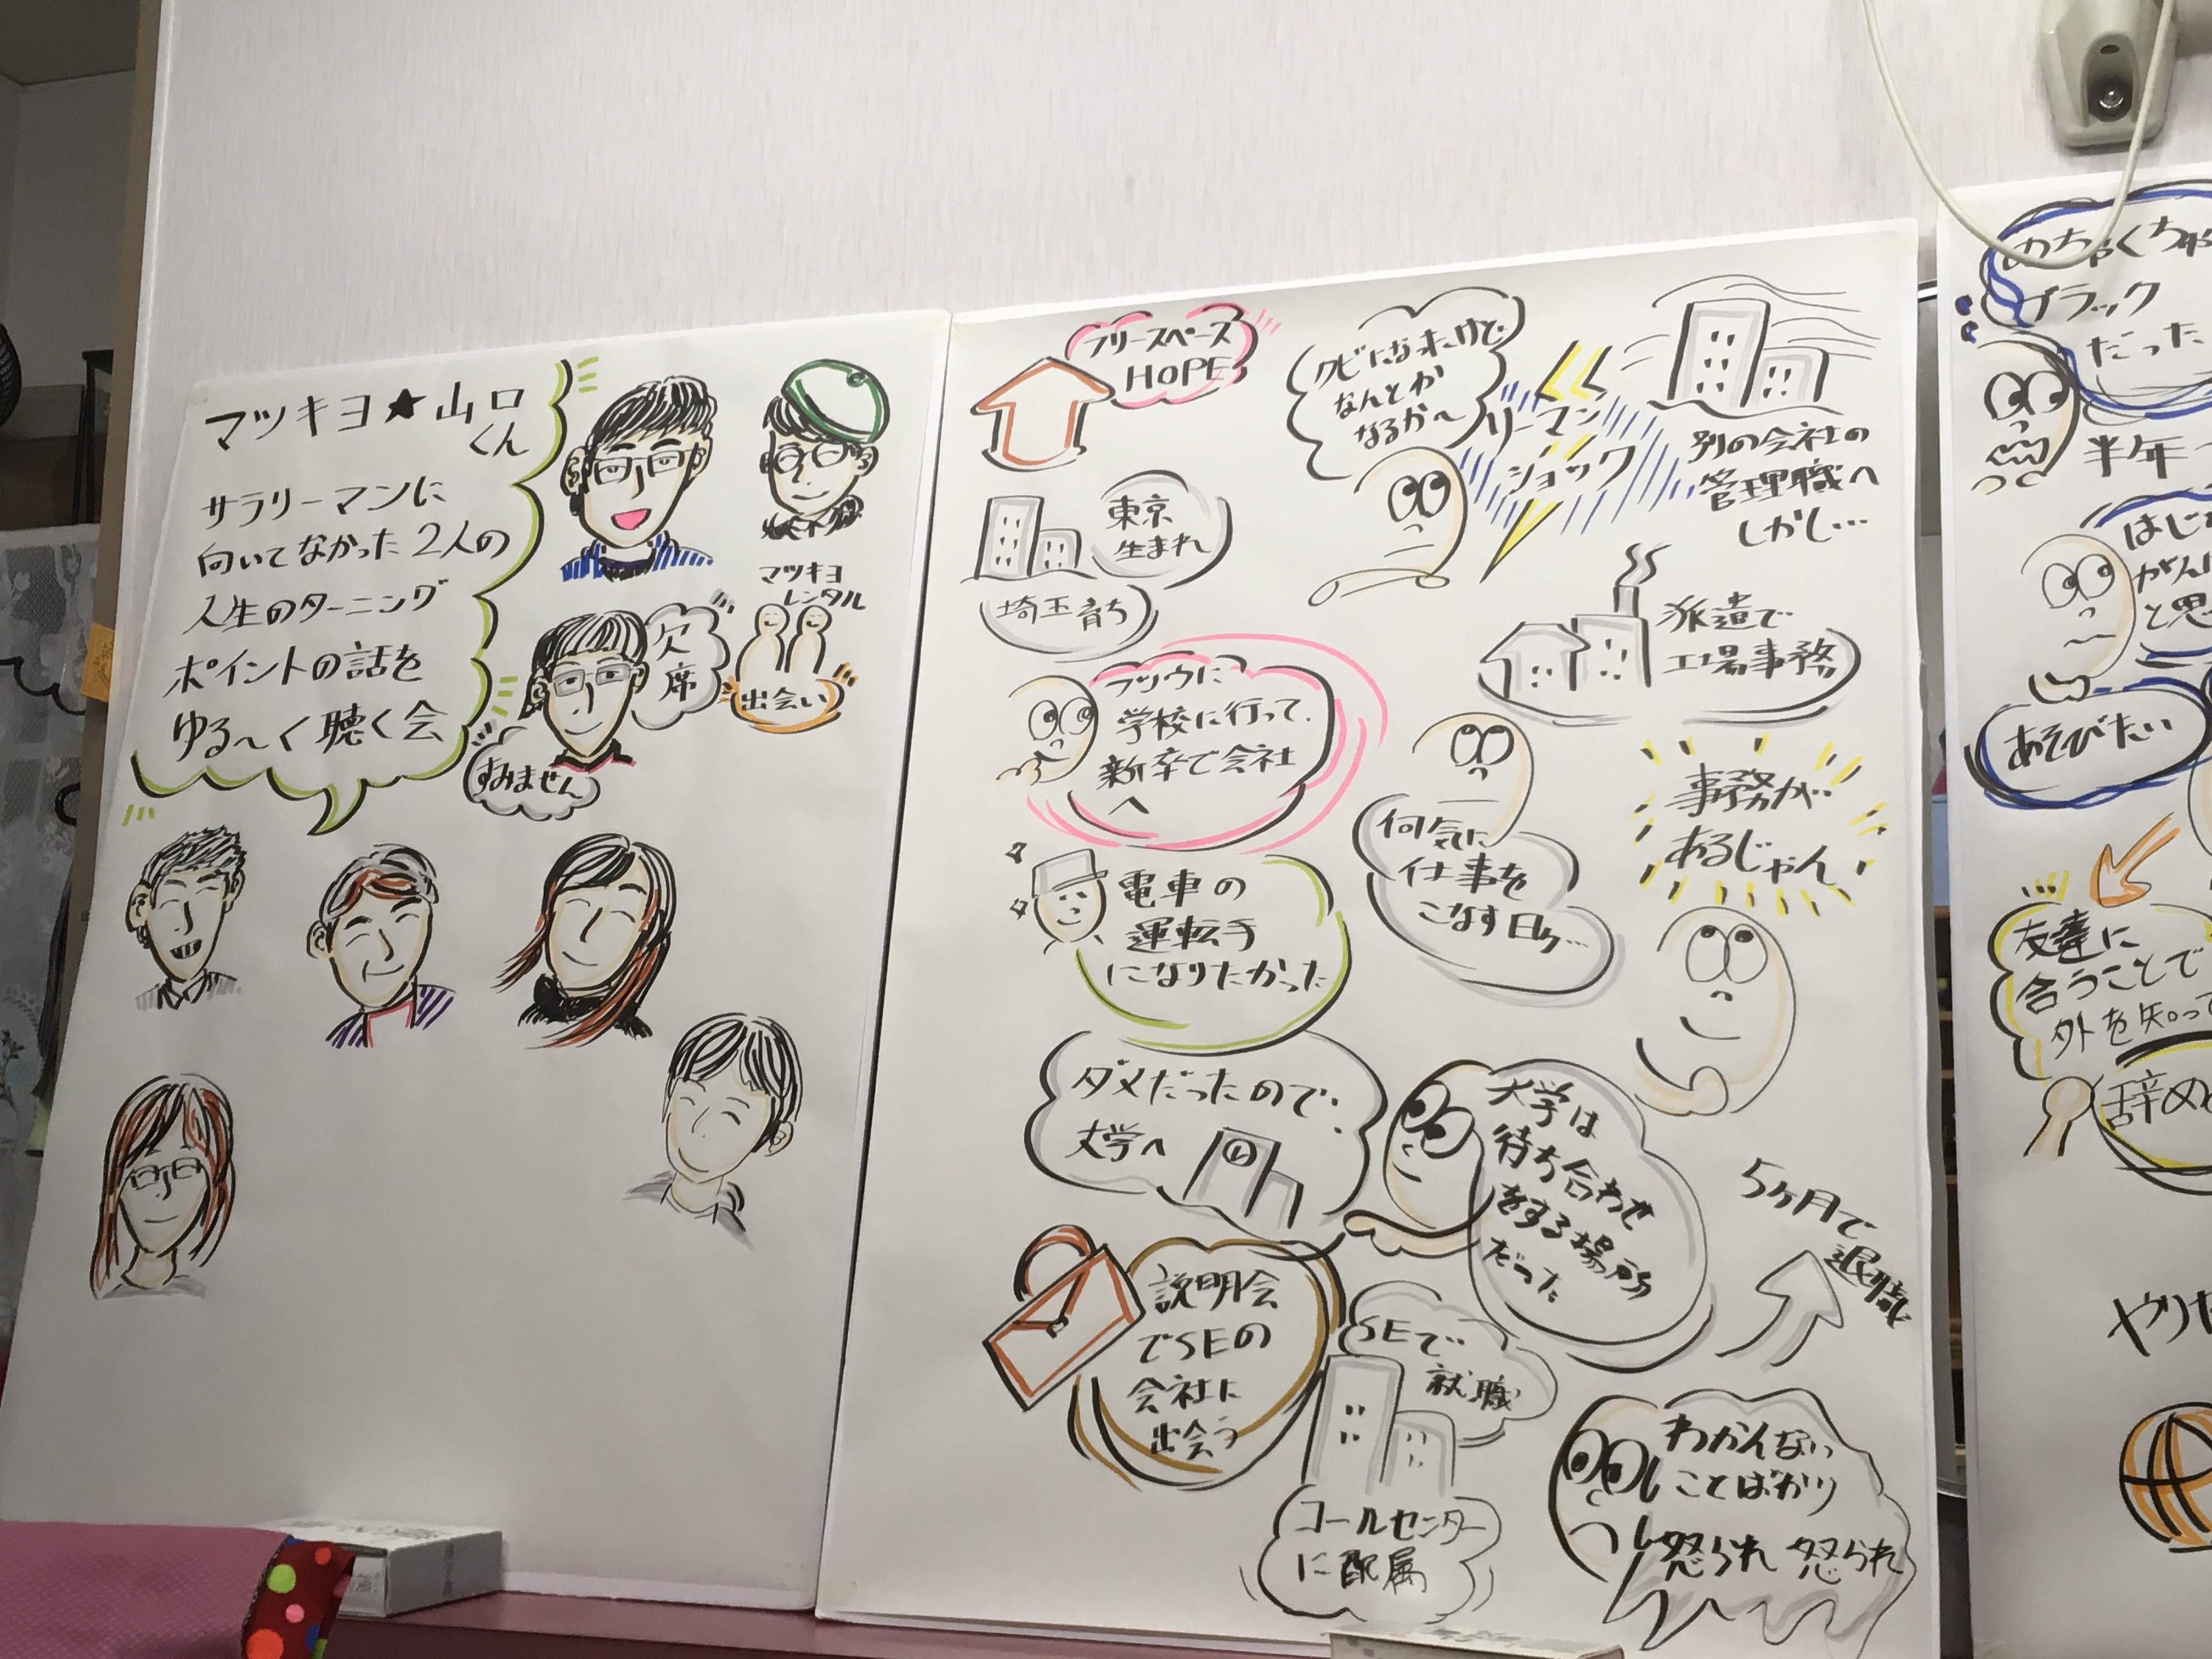 マツキヨ★山口
くん
サラリーマンに
向いてなかった2人の
人生のターニング
ポイントの話を
ゆる〜く聴く会
マツキヨ
レンタル
出会い
欠
席
すみません
フリースペース
HOPE
東京
生まれ
埼玉育ち
フツウに
学校に行って、
新卒で会社
へ
電車の
運転手
になりたかった
ダメだったので、
大学へ
大学は
待ち合わせ
をする場所
だった
説明会
でSEの
会社に
出会う
SEで
就職
コールセンター
に配属
わかんない
ことばかり
怒られ 怒られ
5ヶ月で
退職
事務が
あるじゃん
派遣で
工場事務
何気に
仕事を
こなす日々…
別の会社の
管理職へ
しかし…
リーマン
ショック
クビになったけど
なんとか
なるか〜
めちゃくちゃ
ブラック
だった
半年
はじ
がん
と思
あそびたい
友達に
合うことで
外を知っ
辞め
やりた